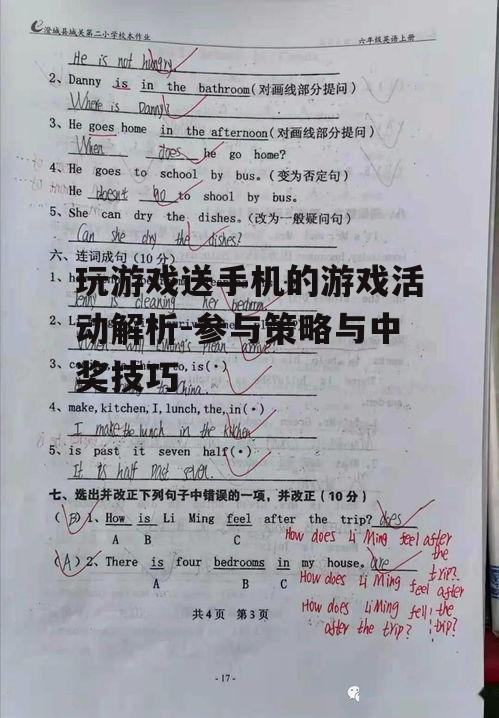 澄城县城关第二小学校本作业 六年级英语上册
He is not hungry
2、Danny is in the bathroom(对画线部分提问)
Where is Danny?
3、He goes home in the afternoon(对画线部分提问)
When does he go home?
4、He goes to school by bus.(变为否定句)
He doesn't go to shool by bus.
5、She can dry the dishes.(改为一般疑问句)
Can she dry the dishes?
六、连词成句(10分)
玩游戏送手机的游戏活
1、
Jenny is cleaning her bedroom
动解析-参与策略与中
2、
to,is(·)
奖技巧
China.
4、make,kitchen,I,lunch,the,in(·)
I make the lunch in the kitchen
5、is past it seven half(·)
It is half past seven.
七、选出并改正下列句子中错误的一项,并改正(10分)
(B)1、How is Li Ming feel after the trip? does
A B C
How does Li Ming feel after the trip?
(A)2、There is four bedrooms in my house. are
A B C
How does Li Ming feel after the trip?
How does Li Ming fell after the trip?
共4页 第3页
-17-